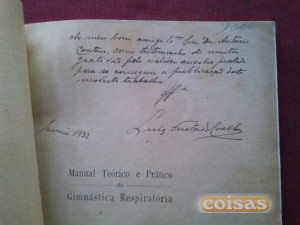 Ao meu bom amigo Sr. Dr. António
como testemunho de muita
gratidão, pelo valioso auxílio prestado
para se conseguir a publicação deste
modesto trabalho
Off.
1932
Luiz Furtado Coelho
Manual Teórico e Prático
de
Gimnástica Respiratória
coisas